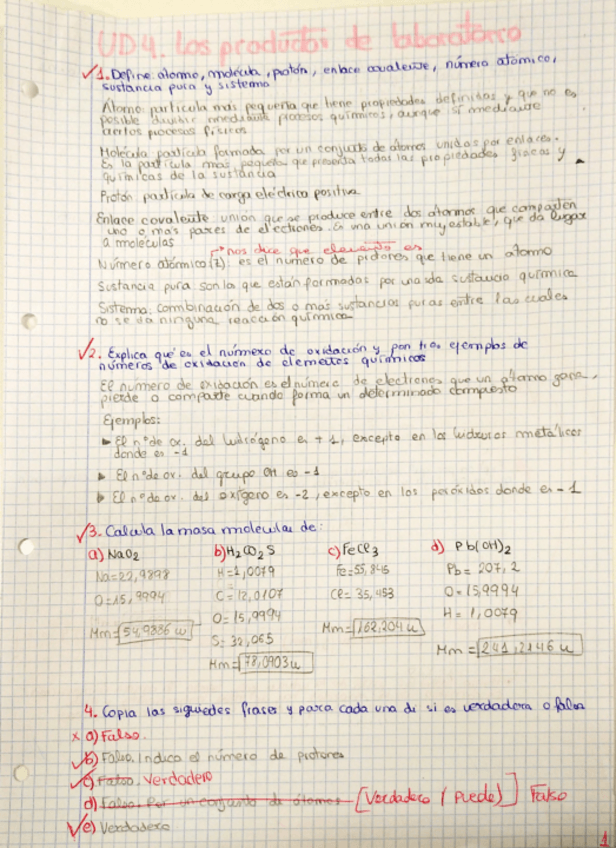 UD4. Los productos de laboratorio
✓1. Define: átomo, molécula, protón, enlace covalente, número atómico,
sustancia pura y sistema
Átomo: partícula más pequeña que tiene propiedades definidas y que no es
posible dividir mediante procesos químicos, aunque sí mediante
ciertos procesos físicos
Molécula partícula formada por un conjunto de átomos unidos por enlaces.
Es la partícula más pequeña que presenta todas las propiedades físicas y
químicas de la sustancia
Protón partícula de carga eléctrica positiva
Enlace covalente unión que se produce entre dos átomos que comparten
uno o más pares de electrones. Es una unión muy estable, que da lugar
a moléculas
nos dice que elemento es
Número atómico (Z): es el número de protones que tiene un átomo
Sustancia pura son las que están formados por una sola sustancia química
Sistema: combinación de dos o más sustancias puras entre las cuales
no se da ninguna reacción química
✓2. Explica qué es el número de oxidación y pon tres ejemplos de
números de oxidación de elementos químicos
El número de oxidación es el número de electrones que un átomo gana,
pierde o comparte cuando forma un determinado compuesto
Ejemplos:
▶ El nº de ox. del hidrógeno es + 1, excepto en los hidruros metálicos
donde es -1
▶ El nº de ox. del grupo OH es -1
▶ El nº de ox. del oxígeno es -2, excepto en los peróxidos donde es -1
✓3. Calcula la masa molecular de:
a) NaO2 b) H2CO2S c) FeCl3 d) Pb(OH)2
Na=22,9898 H=1,0079 Fe=55,845 Pb= 207,2
O=15,9994 C=12,0107 Cl= 35,453 O=15,9994
O=15,9994 H= 1,0079
Mm=54,9886 u S=32,065 Mm=162,204 u Mm=241,2146 u
Mm=78,0903 u
4. Copia las siguientes frases y para cada una di si es verdadera o falsa
x a) Falso.
✓b) Falso. Indica el número de protones
✓c) Falso. Verdadero
d) Falso. Por un conjunto de átomos [Verdadero / Puede)] Falso
✓e) Verdadero
1